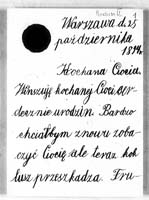 Warszawa d. 25
października
Kochana Ciocia.
Winszuję kochanej Cioci ser-
decznie urodzin. Bardzo
chciałbym znowu zoba-
czyć Ciocię ale teraz kok-
lusz przeszkadza. Fru-